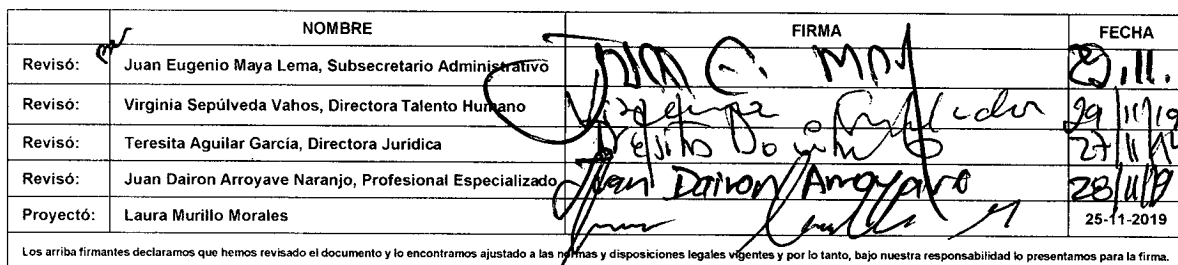 NOMBRE FIRMA FECHA
Revisó: Juan Eugenio Maya Lema, Subsecretario Administrativo 29.11.
Revisó: Virginia Sepúlveda Vahos, Directora Talento Humano 29/11/19
Revisó: Teresita Aguilar García, Directora Jurídica 27/11/19
Revisó: Juan Dairon Arroyave Naranjo, Profesional Especializado Juan Dairon Arroyave 28/11/19
Proyectó: Laura Murillo Morales 25-11-2019
Los arriba firmantes declaramos que hemos revisado el documento y lo encontramos ajustado a las normas y disposiciones legales vigentes y por lo tanto, bajo nuestra responsabilidad lo presentamos para la firma.